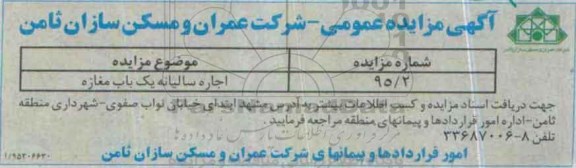 آگهی مزایده عمومی-شرکت عمران و مسکن سازان ثامن
شماره مزایده
موضوع مزایده
۹۵/۲
اجاره سالیانه یک باب مغازه
جهت دریافت اسناد مزایده و کسب اطلاعات بیشتر به آدرس مشهد ابتدای خیابان نواب صفوی-شهرداری منطقه
ثامن-اداره امور قراردادها و پیمانهای منطقه مراجعه فرمایید.
تلفن ۸-۳۳۶۸۷۰۰۶
امور قراردادها و پیمانهای شرکت عمران و مسکن سازان ثامن
۱/۹۵۲۰۶۶۳۰